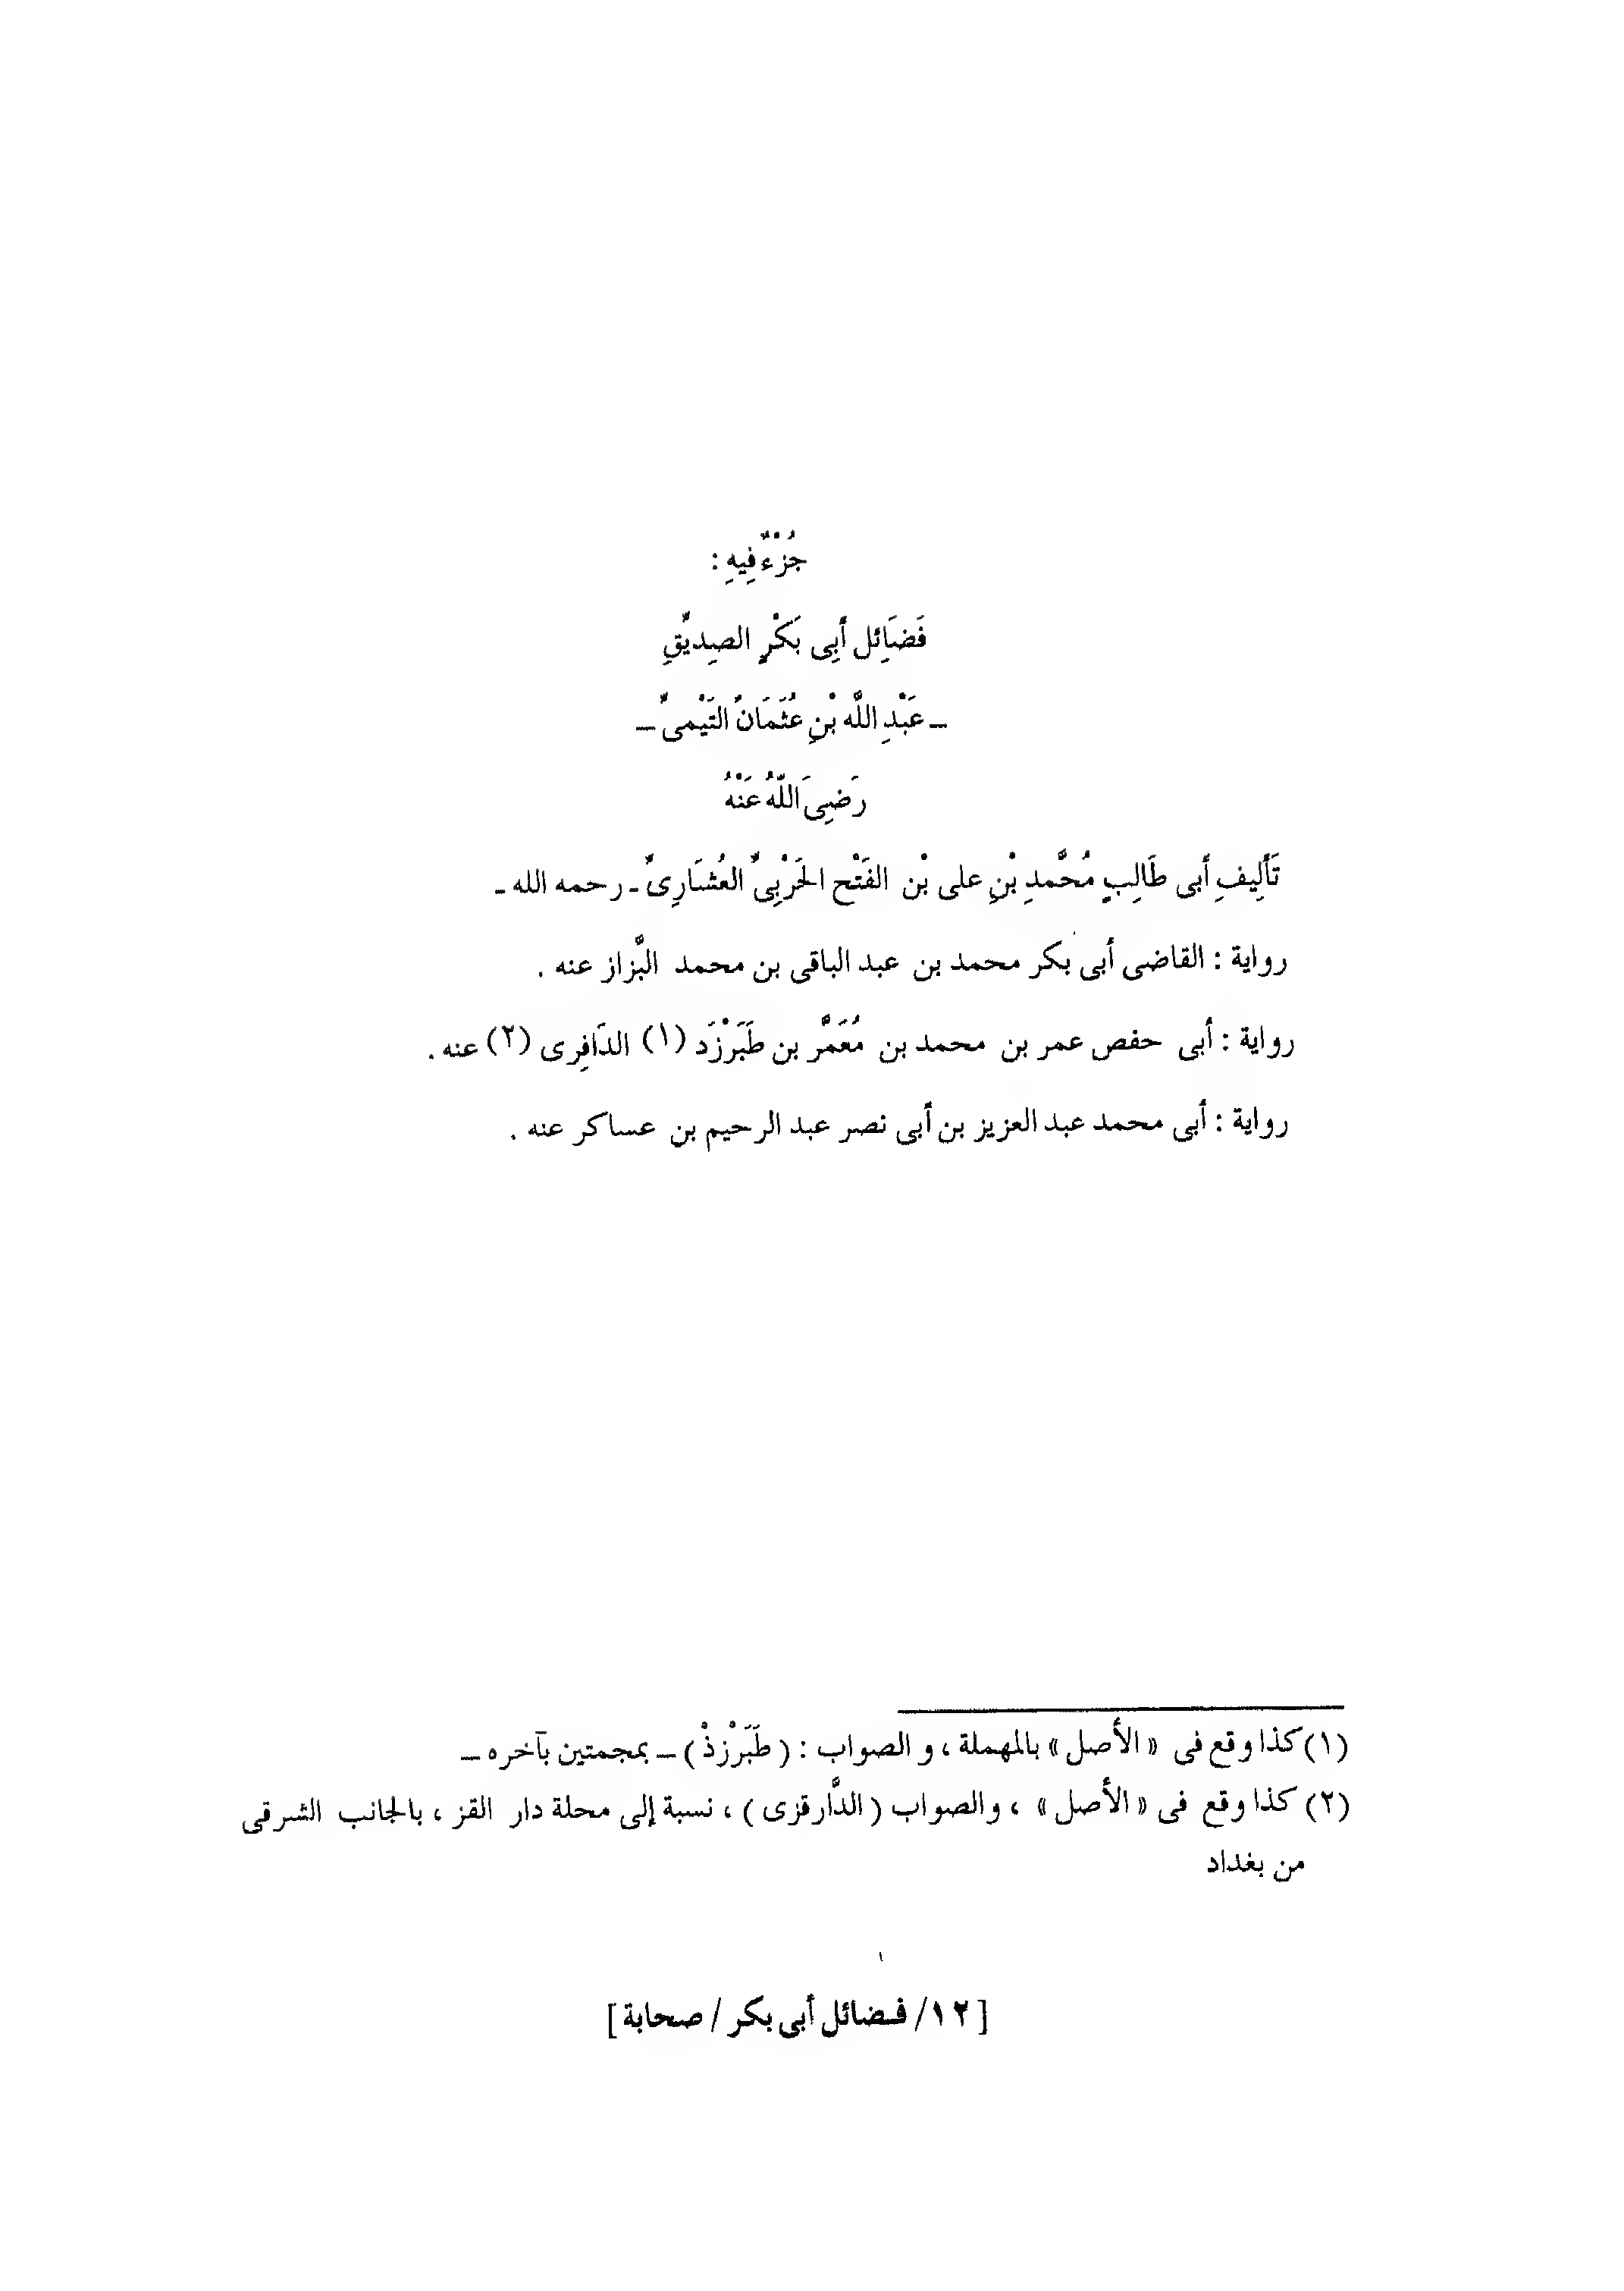 جُزْءٌ فِيهِ :
فَضَائِل أَبِى بَكْرٍ الصِدِيّقِ
ـ عَبْدِ اللَّه بْنِ عُثَمَانَ التَيْمىّ ـ
رَضِىَ اللَّهُ عَنْهُ
تَأَلِيفِ أَبى طَالِبٍ مُحَّمدِ بْنِ على بْن الفَتْح الحَرْبِىّ العُشَارِىّ ـ رحمه الله ـ
رواية : القاضى أبى بكر محمد بن عبد الباقى بن محمد البَّزاز عنه .
رواية : أبى حفص عمر بن محمد بن مُعَمَّر بن طَبَرْزَد (١) الدَافِرى (٢) عنه .
رواية : أبى محمد عبد العزيز بن أبى نصر عبد الرحيم بن عساكر عنه .
(١) كذا وقع فى « الأصل » بالمهملة ، و الصواب : ( طَبَرْزذْ ) ـ بمجمتين بآخره ـ
(٢) كذا وقع فى « الأصل » ، والصواب ( الدَّارقزى ) ، نسبة إلى محلة دار القز ، بالجانب الشرقى
من بغداد
[ ١٢/ فضائل أبى بكر / صحابة ]